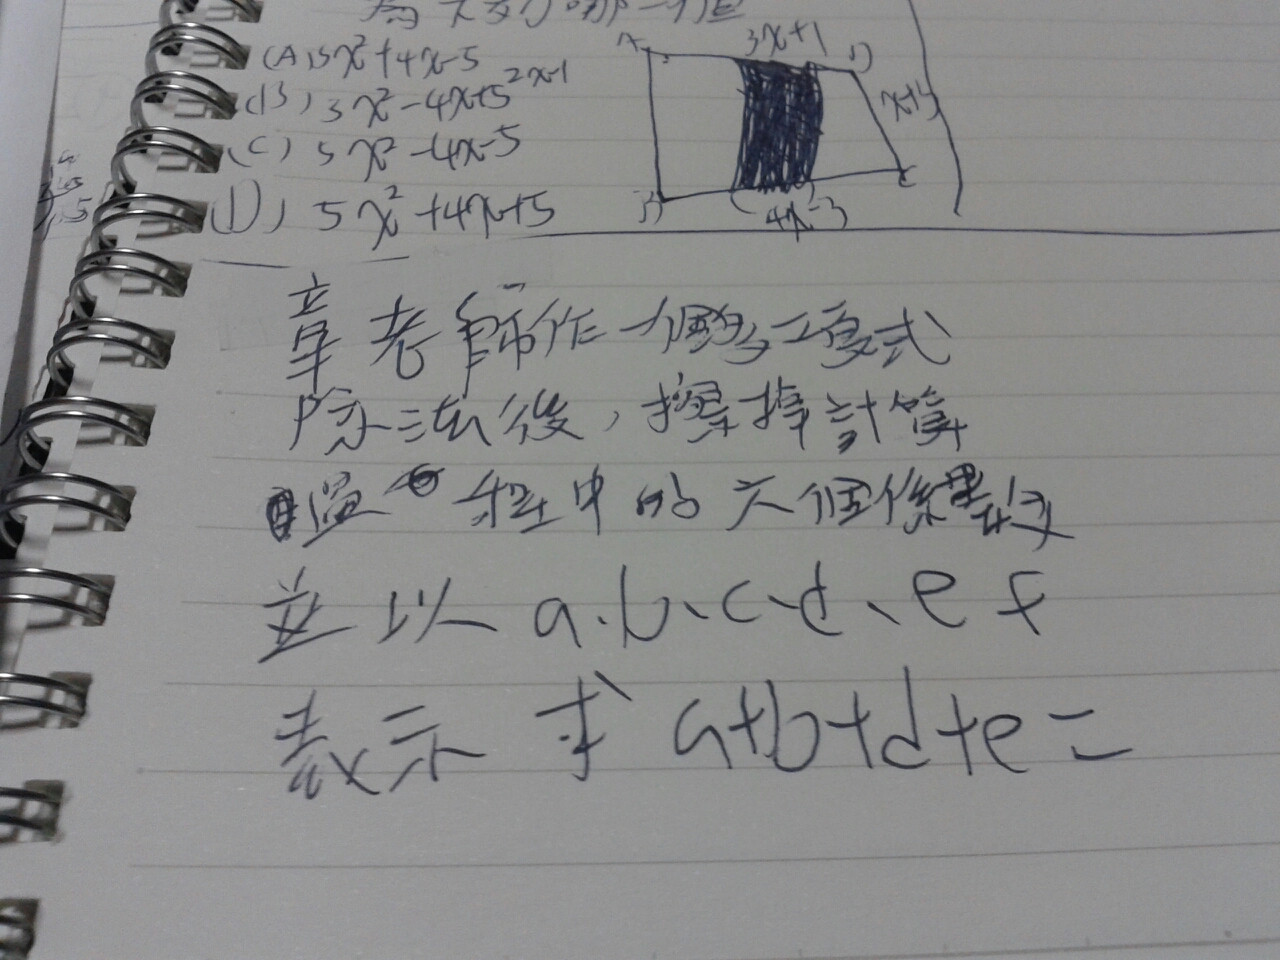 為下列哪一個
(A) 3x²+4x-5
(B) 3x²-4x+5
(C) 5x²-4x-5
(D) 5x²+4x+5
A
3x+1
D
2x-1
B
4x-3
C
章老師作一個多項式
除法後,擦掉計算
過程中的六個係數
並以 a.b、c、d、e f
表示 求 a+b+d+e=